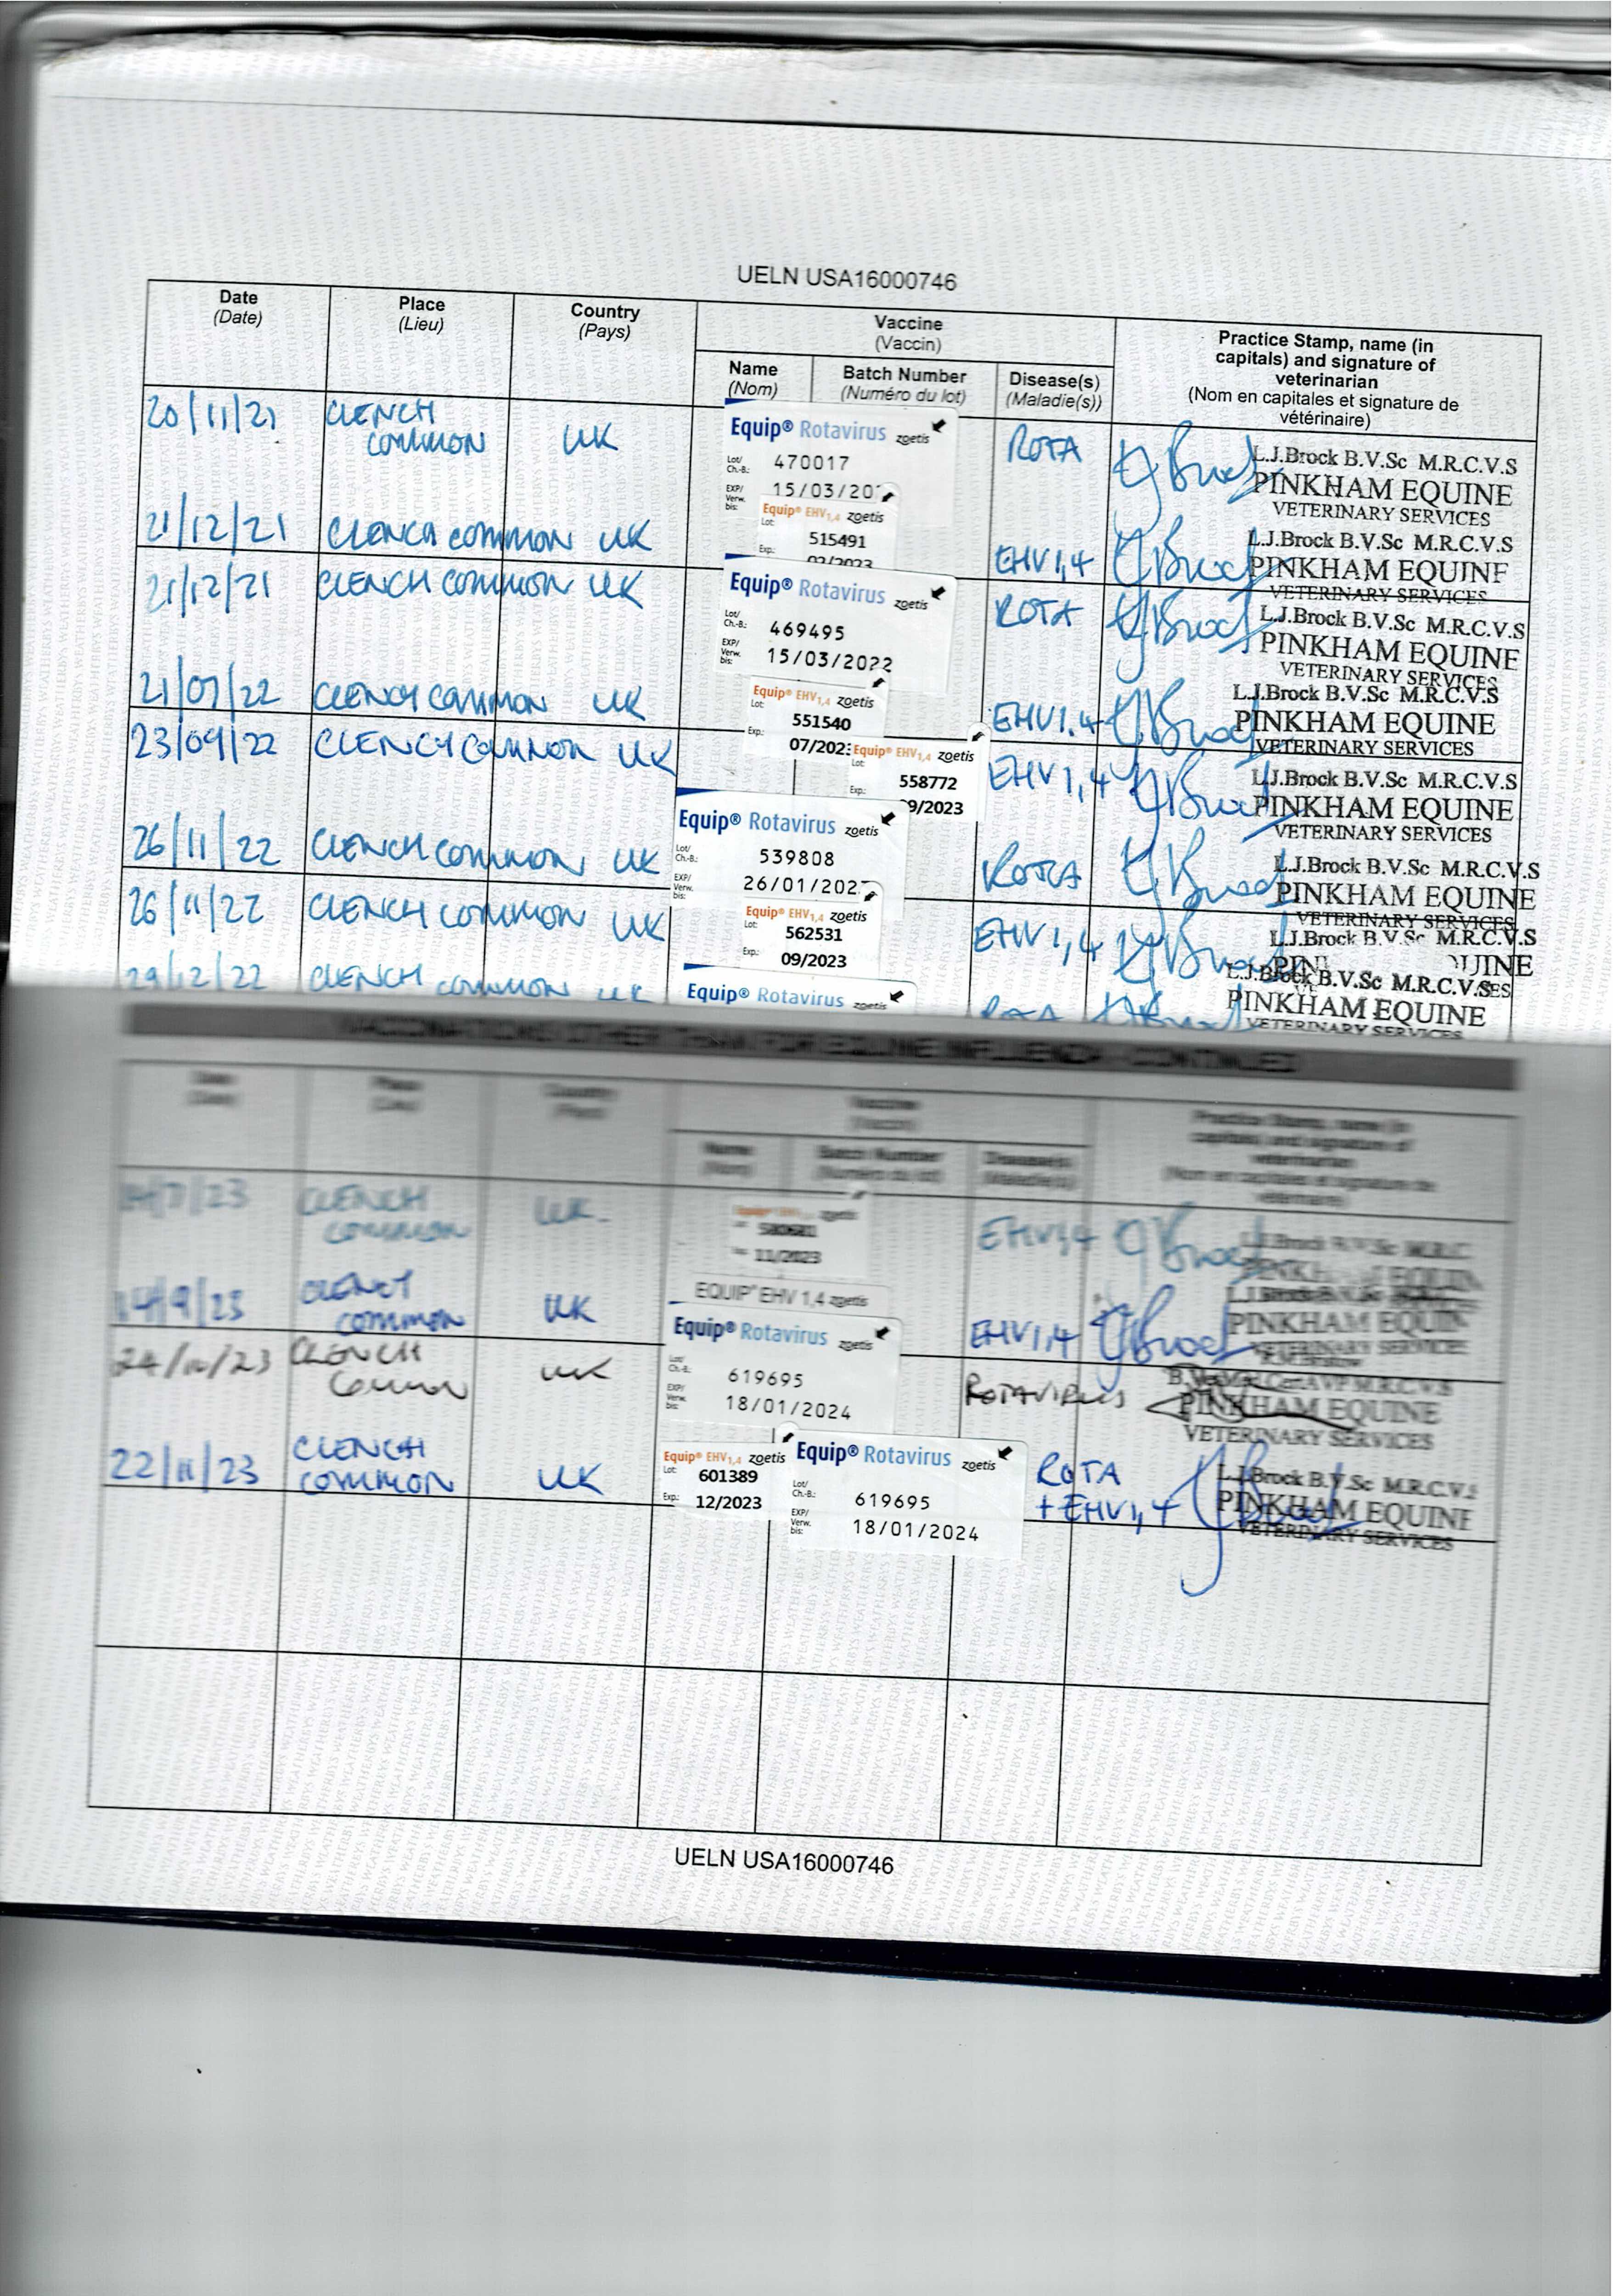 UELN USA16000746
Date Place Country Vaccine Practice Stamp, name (in
(Date) (Lieu) (Pays) (Vaccin) capitals) and signature of
Name Batch Number Disease(s) veterinarian
(Nom) (Numéro du lot) (Maladie(s)) (Nom en capitales et signature de
vétérinaire)
20/11/21 CLENCH COMMON UK ROTA
Equip® Rotavirus zoetis
Lot/ Ch.-B.: 470017
EXP/ Verw. bis: 15/03/20
L.J.Brock B.V.Sc M.R.C.V.S
PINKHAM EQUINE
VETERINARY SERVICES
21/12/21 CLENCH COMMON UK EHV1,4
Equip® EHV1,4 zoetis
Lot: 515491
Exp.: 02/2023
L.J.Brock B.V.Sc M.R.C.V.S
PINKHAM EQUINE
VETERINARY SERVICES
21/12/21 CLENCH COMMON UK ROTA
Equip® Rotavirus zoetis
Lot/ Ch.-B.: 469495
EXP/ Verw. bis: 15/03/2022
L.J.Brock B.V.Sc M.R.C.V.S
PINKHAM EQUINE
VETERINARY SERVICES
21/07/22 CLENCH COMMON UK EHV1,4
Equip® EHV1,4 zoetis
Lot: 551540
Exp.: 07/202
L.J.Brock B.V.Sc M.R.C.V.S
PINKHAM EQUINE
VETERINARY SERVICES
23/09/22 CLENCH COMMON UK EHV1,4
Equip® EHV1,4 zoetis
Lot: 558772
Exp.: 9/2023
L.J.Brock B.V.Sc M.R.C.V.S
PINKHAM EQUINE
VETERINARY SERVICES
26/11/22 CLENCH COMMON UK ROTA
Equip® Rotavirus zoetis
Lot/ Ch.-B.: 539808
EXP/ Verw. bis: 26/01/202
L.J.Brock B.V.Sc M.R.C.V.S
PINKHAM EQUINE
VETERINARY SERVICES
26/11/22 CLENCH COMMON UK EHV1,4
Equip® EHV1,4 zoetis
Lot: 562531
Exp.: 09/2023
L.J.Brock B.V.Sc M.R.C.V.S
29/12/22 CLENCH COMMON UK ROTA
Equip® Rotavirus zoetis
L.J.Brock B.V.Sc M.R.C.V.S
PINKHAM EQUINE
VETERINARY SERVICES
VACCINATIONS OTHER THAN FOR EQUINE INFLUENZA - CONTINUED
Date Place Country Vaccine Practice Stamp, name (in
(Date) (Lieu) (Pays) (Vaccin) capitals) and signature of
Name Batch Number Disease(s) veterinarian
(Nom) (Numéro du lot) (Maladie(s)) (Nom en capitales et signature de
vétérinaire)
/7/23 CLENCH COMMON UK EHV1,4
zoetis
11/2023
14/9/23 CLENCH COMMON UK EHV1,4
EQUIP® EHV 1,4 zoetis
PINKHAM EQUINE
VETERINARY SERVICES
24/10/23 CLENCH COMMON UK ROTAVIRUS
Equip® Rotavirus zoetis
Lot/ Ch.-B.: 619695
EXP/ Verw. bis: 18/01/2024
PINKHAM EQUINE
VETERINARY SERVICES
22/11/23 CLENCH COMMON UK ROTA + EHV1,4
Equip® EHV1,4 zoetis
Lot: 601389
Exp.: 12/2023
Equip® Rotavirus zoetis
Lot/ Ch.-B.: 619695
EXP/ Verw. bis: 18/01/2024
L.J.Brock B.V.Sc M.R.C.V.S
PINKHAM EQUINE
VETERINARY SERVICES
UELN USA16000746